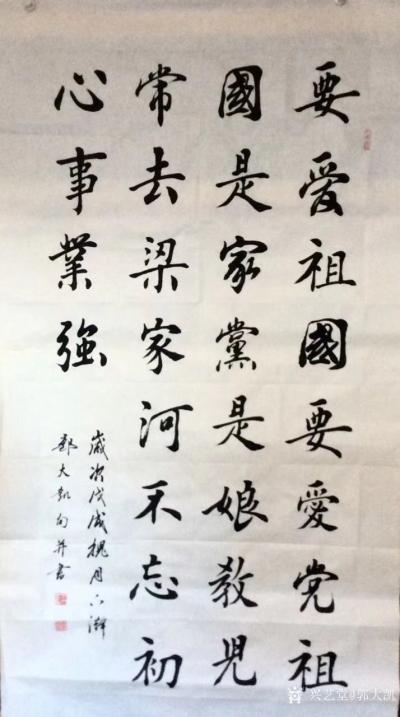 要愛祖國要愛党祖
國是家黨是娘教児
常去梁家河不忘初
心事業強
歲次戊戌槐月下澣
郭大凱句并書
兴艺堂@郭大凯